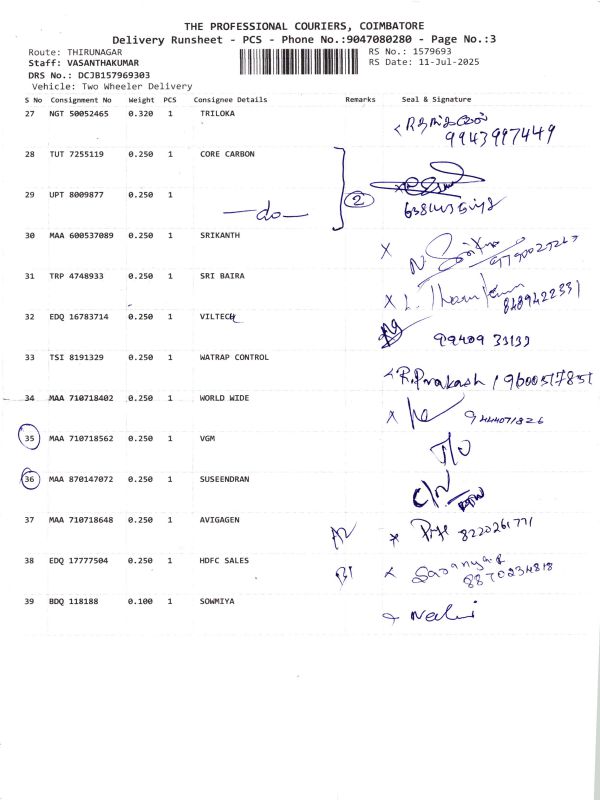 THE PROFESSIONAL COURIERS, COIMBATORE
Delivery Runsheet - PCS - Phone No.:9047080280 - Page No.:3
Route: THIRUNAGAR
RS No.: 1579693
Staff: VASANTHAKUMAR
RS Date: 11-Jul-2025
DRS No.: DCJB157969303
Vehicle: Two Wheeler Delivery
S No Consignment No Weight PCS Consignee Details Remarks Seal & Signature
27 NGT 50052465 0.320 1 TRILOKA
9943997449
28 TUT 7255119 0.250 1 CORE CARBON
29 UPT 8009877 0.250 1 —do— 2
30 MAA 600537089 0.250 1 SRIKANTH
31 TRP 4748933 0.250 1 SRI BAIRA
8489422331
32 EDQ 16783714 0.250 1 VILTECH
99409 33133
33 TSI 8191329 0.250 1 WATRAP CONTROL
R. Prakash / 9600517851
34 MAA 710718402 0.250 1 WORLD WIDE
9444071826
35 MAA 710718562 0.250 1 VGM
36 MAA 870147072 0.250 1 SUSEENDRAN
37 MAA 710718648 0.250 1 AVIGAGEN
8220261771
38 EDQ 17777504 0.250 1 HDFC SALES
Saranya
8870234818
39 BDQ 118188 0.100 1 SOWMIYA